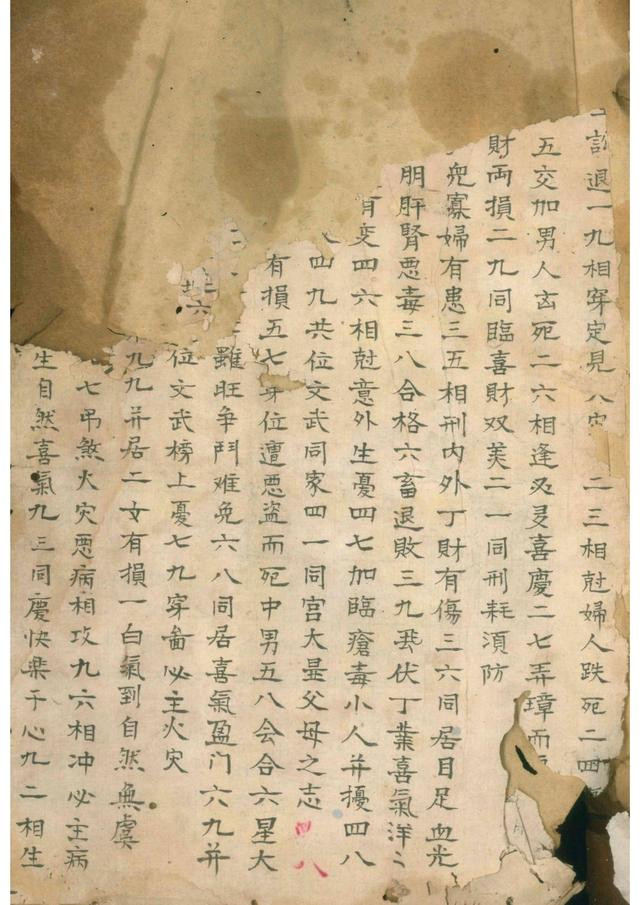 訟退一九相穿定見八 二三相尅婦人跌死二四
五交加男人 死二六相逢 喜慶二七弄璋而
財両損二九同臨喜財双美二一同刑耗須防
寡婦有患三五相刑内外丁財有傷三六同居目足血光
肝腎悪毒三八合格六畜退敗三九 伏丁葉喜氣洋〻
有变四六相尅意外生憂四七加臨瘡毒小人并擾四八
四九共位文武同家四一同宫大显父母之志 八
有損五七 位遭悪盗而死中男五八会合六星大
雖旺争鬥难免六八同居喜氣盈门六九并
六 位文武榜上憂七九穿 必主火灾
九九并居二女有損一白氣到自然無虞
七吊煞火灾悪病相攻九六相冲必主病
生自然喜氣九三同慶快楽于心九二相生